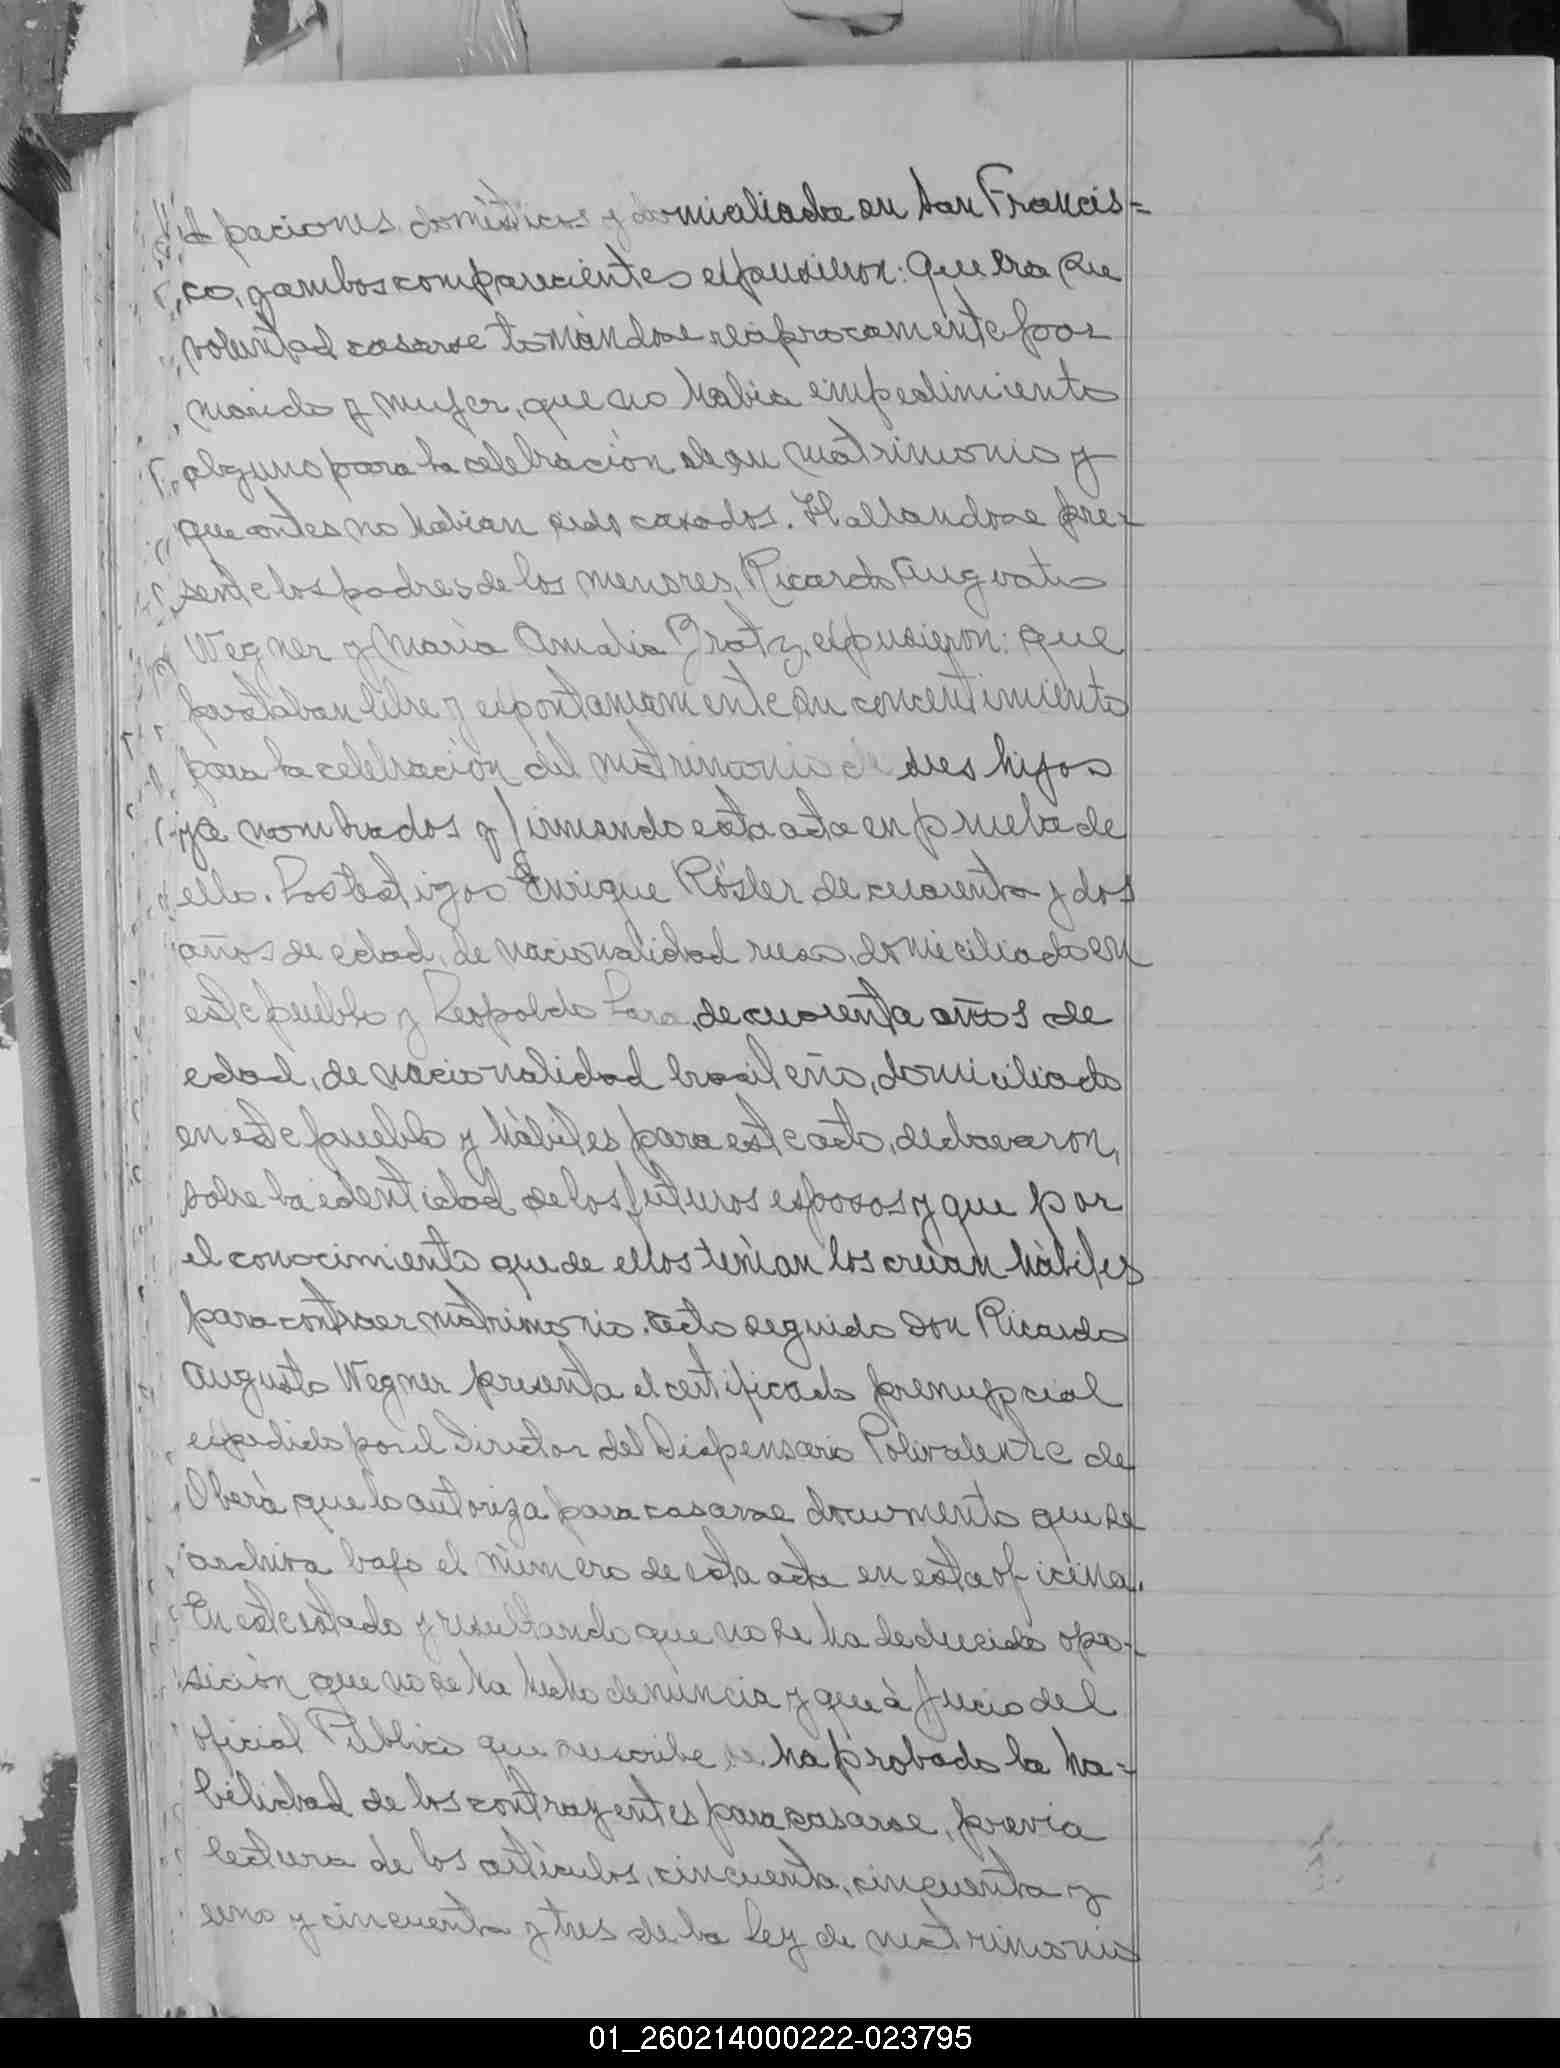 paciones domésticas y domiciliada en San Francis=
co, y ambos comparecientes expusieron: Que era su
voluntad casarse tomándose reciprocamente por
marido y mujer, que no habia impedimiento
alguno para la celebración de su matrimonio y
que antes no habian sido casados. Hallandose pre-
sente los padres de los menores, Ricardo Augusto
Wegner y Maria Amalia Bratz, expusieron: que
prestaban libre y espontaneamente su concentimiento
para la celebración del matrimonio de sus hijos
ya nombrados y firmando esta acta en prueba de
ello. Los testigos Enrique Rösler de cuarenta y dos
años de edad, de nacionalidad ruso, domiciliado en
este pueblo y Leopoldo Lara, de cuarenta años de
edad, de nacionalidad brasileña, domiciliado
en este pueblo y hábiles para este acto, declararon,
sobre la identidad de los futuros esposos y que por
el conocimiento que de ellos tenian los creian hábiles
para contraer matrimonio. Acto seguido Don Ricardo
Augusto Wegner presenta el certificado prenupcial
expedido por el Director del Dispensario Polivalente de
Oberá que lo autoriza para casarse documento que se
archiva bajo el número de esta acta en esta oficina.
En este estado y resultando que no se ha deducido opo-
sición que no se ha hecho denuncia y que á juicio del
oficial Público que suscribe se ha probado la ha=
bilidad de los contrayentes para casarse, previa
lectura de los articulos, cincuenta, cincuenta y
uno y cincuenta y tres de la Ley de matrimonio
01_260214000222-023795